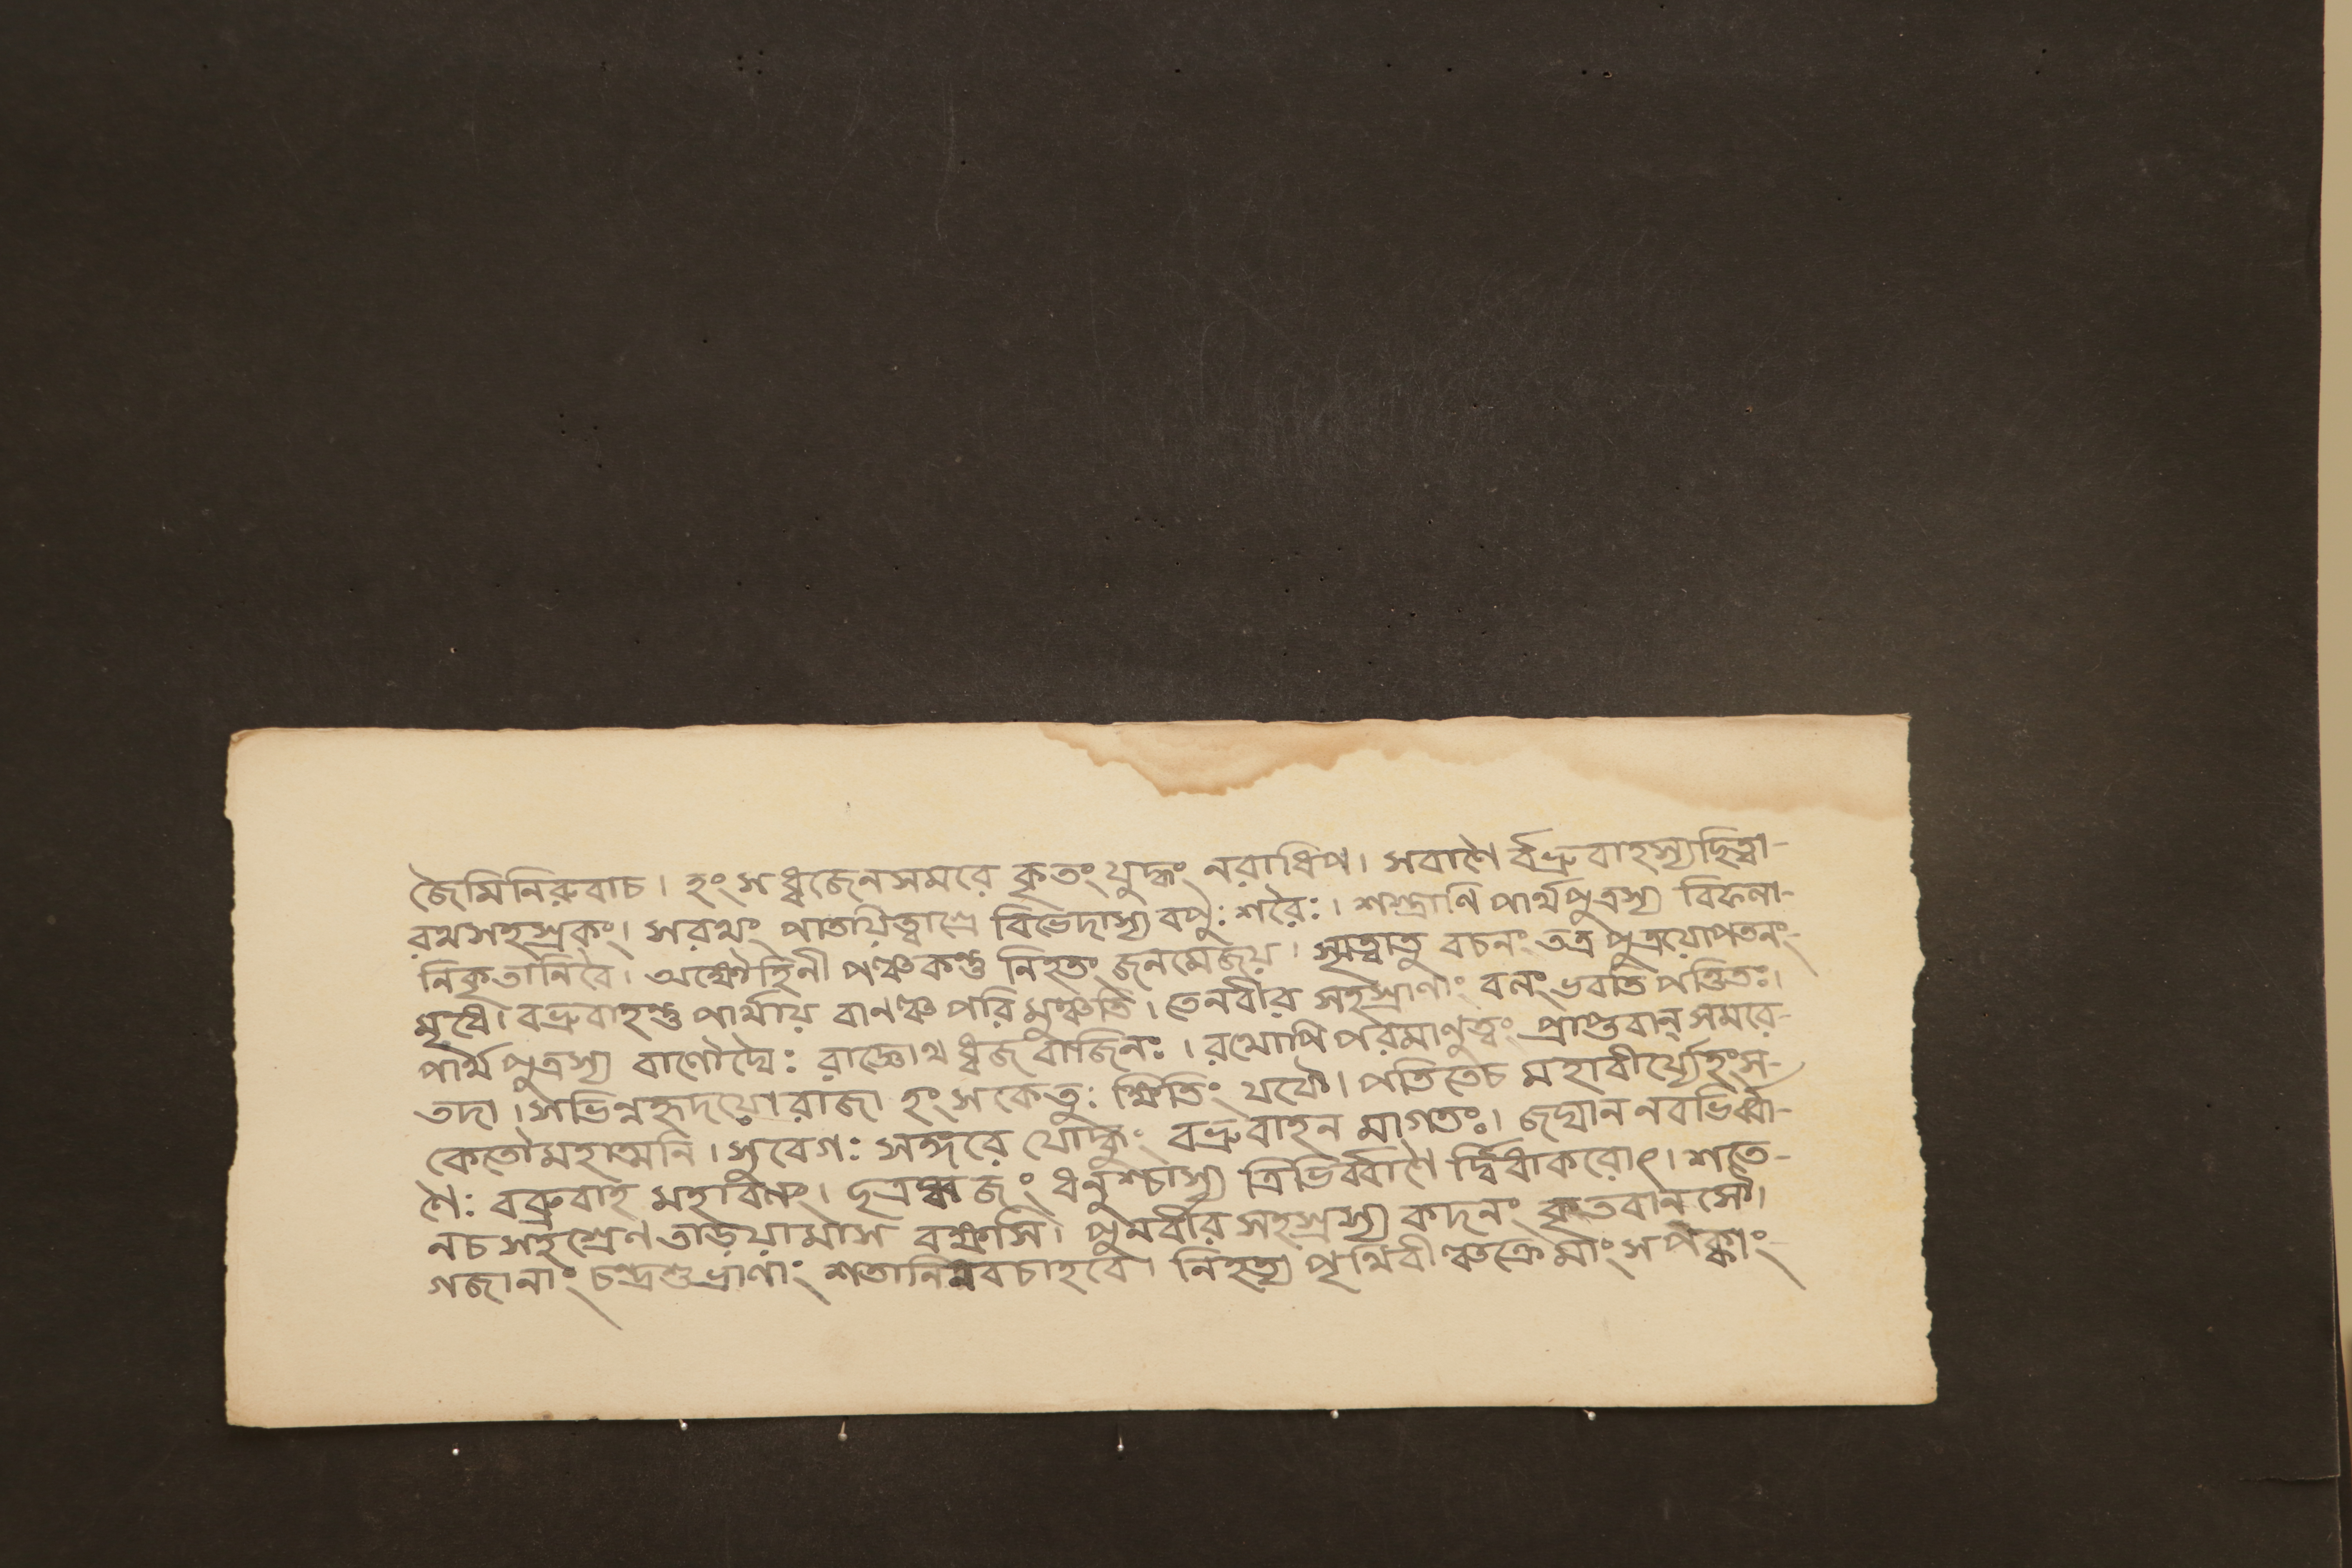 জৈমিনিরুবাচ। হংসধ্বজেনসমরে কৃতংযুদ্ধং নরাধিপ। সবাণৈ র্বভ্রুবাহস্যছিত্বা-
রথসহস্রকং। সরথং পাতয়িত্বাশ্রে বিভেদাস্য বপুঃ শরৈঃ। শস্ত্রাণি পার্থপুত্রস্য বিফলা-
নিকৃতানিবৈ। অক্ষৌহিনী পঞ্চকন্তু নিহতং জনমেজয়। স্মৃত্বাতু বচনং তত্র পুত্রয়োপতনং-
মৃধে। বভ্রুবাহন্তু পার্থায় বানঞ্চ পরি মুঞ্চতি। তেনবীর সহস্রাণাং বলং ভবতি পণ্ডিতঃ।
পার্থ পুত্রস্য বাণৌঘৈঃ রাজ্ঞোথ ধ্বজবাজিনঃ। রথোপি পরমাণুত্বং প্রাপ্তবান্ সমরে-
তদা। সভিন্নহৃদয়ো রাজা হংসকেতুঃ ক্ষিতিং যযৌ। পতিতেচ মহাবীর্য্যেহংস-
কেতৌমহাত্মনি। সুবেগঃ সঙ্গরে যোদ্ধুং বভ্রুবাহন মাগতঃ। জঘান নবভির্ব্বা-
ণৈঃ বব্রুবাহ মহাবলং। ছত্রধ্বজং ধনুশ্চাস্য ত্রিভির্ব্বাণৈ র্দ্বিধাকরোৎ। শতে-
নচ সহশ্রেণ তাড়য়ামাস বক্ষসি। পুনর্বীর সহস্রস্য কদনং কৃতবানসৌ।
গজানাং চন্দ্রশুভ্রাণাং শতানিনবচাহবে। নিহত্য পৃথিবীঞ্চক্রেমাংসপঙ্কাং-